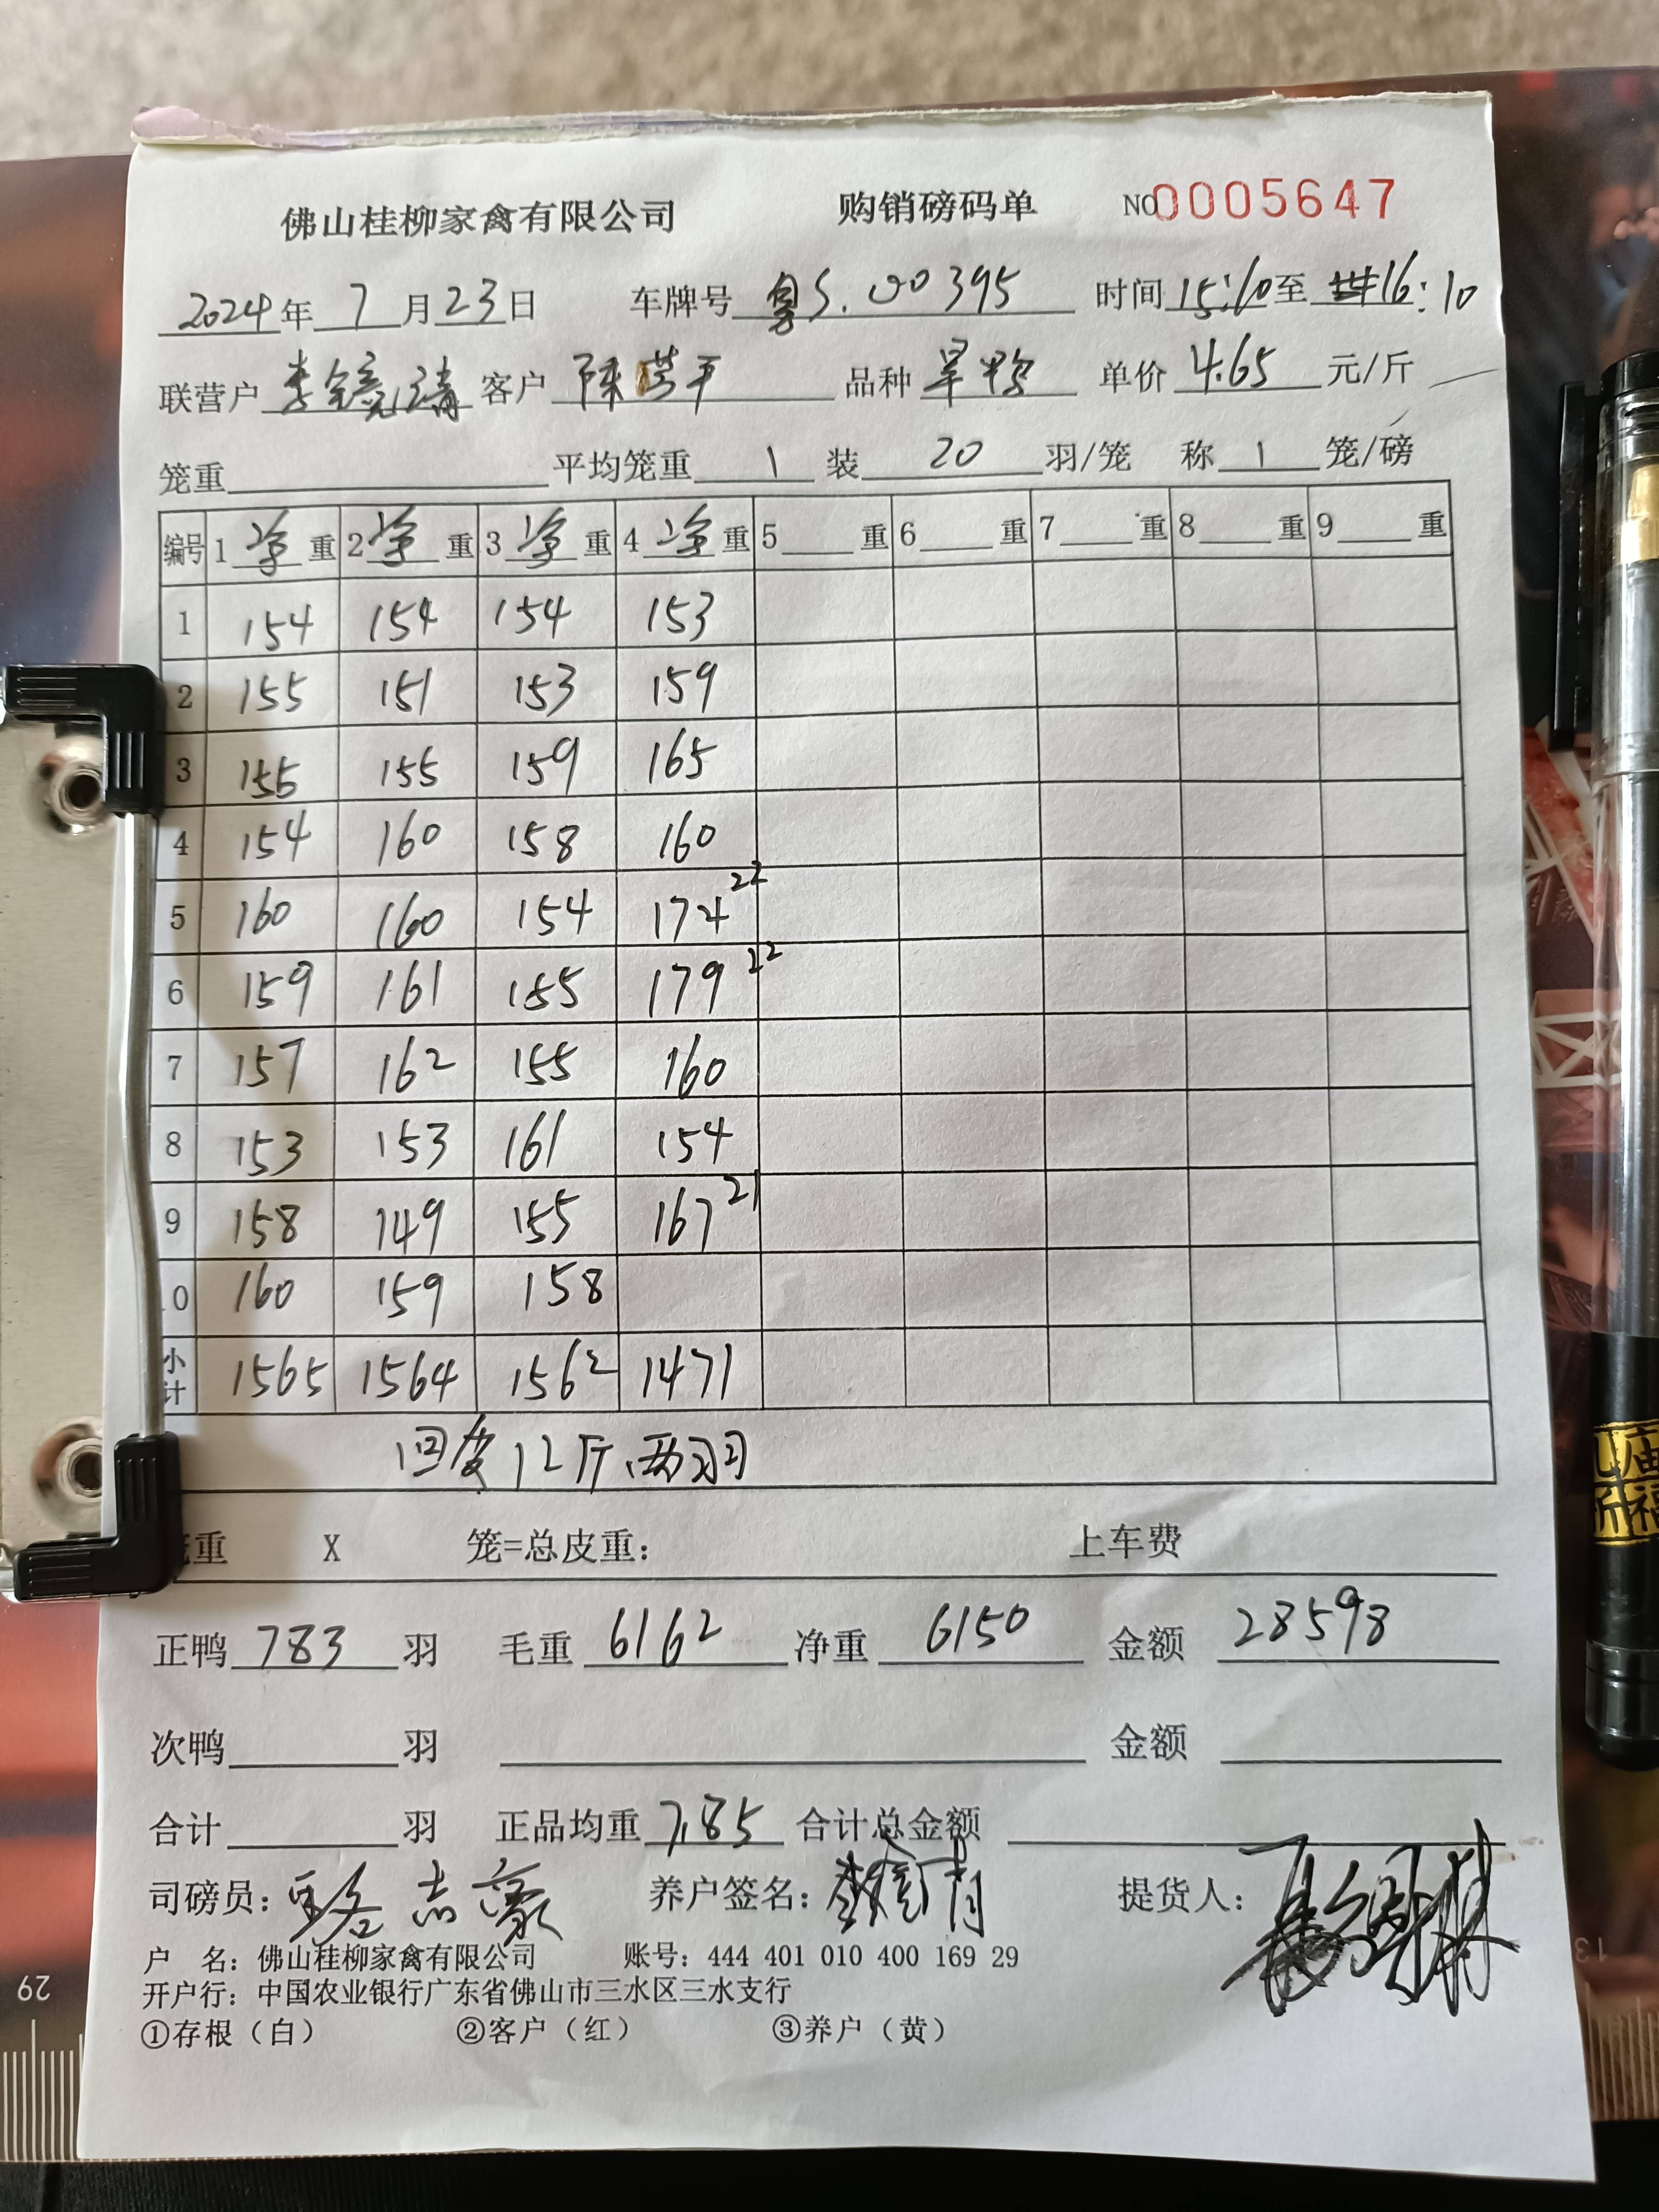 佛山桂柳家禽有限公司 购销磅码单 NO0005647
2024年7月23日 车牌号粤S.00395 时间15:10至16:10
联营户李镜清客户陈芸平 品种旱鸭 单价4.65元/斤
笼重 平均笼重1装20羽/笼 称1笼/磅
编号 1净重 2净重 3净重 4净重 5重 6重 7重 8重 9重
1 154 154 154 153
2 155 151 153 159
3 155 155 159 165
4 154 160 158 160
5 160 160 154 174 22
6 159 161 155 179 22
7 157 162 155 160
8 153 153 161 154
9 158 149 155 167 21
10 160 159 158
小计 1565 1564 1562 1471
回皮12斤.两羽
重 X 笼=总皮重: 上车费
正鸭783羽 毛重6162净重6150 金额28598
次鸭 羽 金额
合计 羽 正品均重7.85合计总金额
司磅员: 志豪 养户签名: 提货人:
户 名: 佛山桂柳家禽有限公司 账号: 444 401 010 400 169 29
开户行: 中国农业银行广东省佛山市三水区三水支行
①存根(白) ②客户(红) ③养户(黄)
29
13
庙
祈福